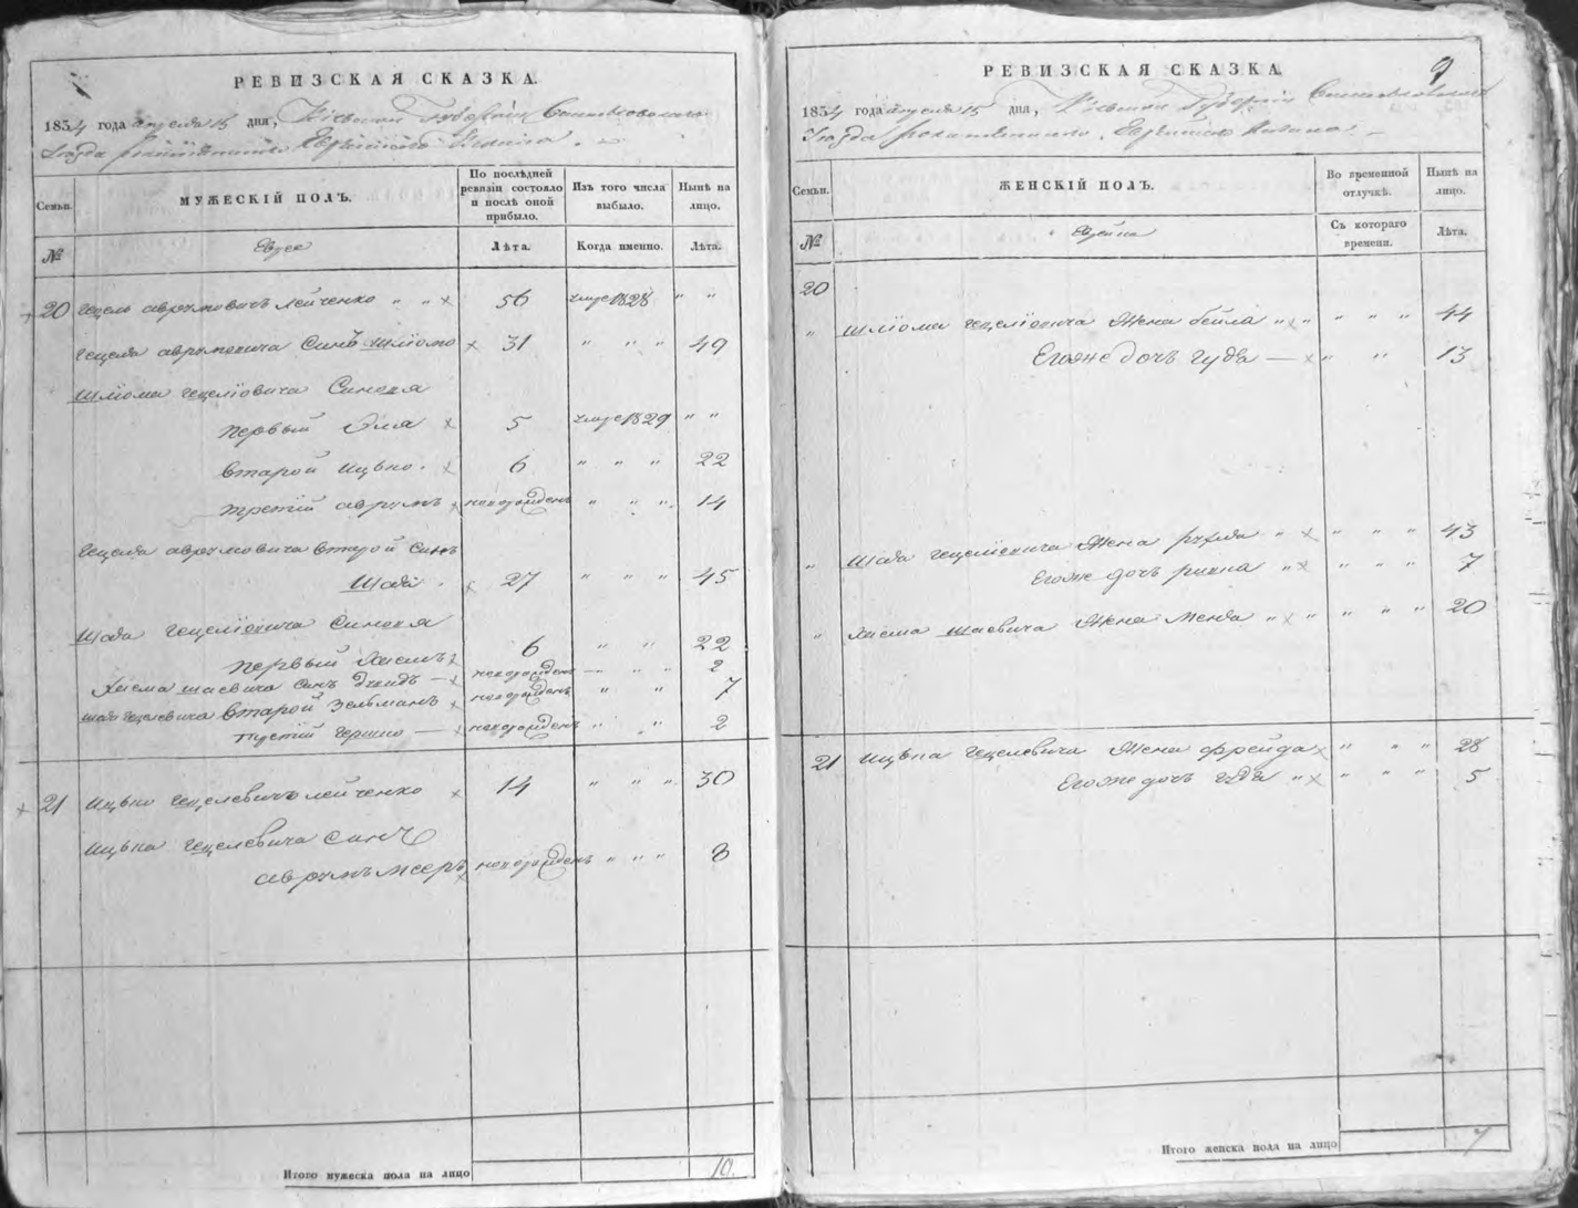 РЕВИЗСКАЯ СКАЗКА.
1854 года апреля 15 дня, Кіевской Губерніи
Уезда Еврейского
Семьи.
МУЖЕСКІЙ ПОЛЪ.
По послѣдней ревизіи состояло и послѣ оной прибыло.
Изъ того числа выбыло.
Нынѣ на лицо.
№
Евреи
Лѣта.
Когда именно.
Лѣта.
20 Гецель Аврумовичъ Лейченко " " х 56 1828 " "
Гецеля Аврумовича Синъ Шліомо х 31 " " " 49
Шліома Гецеліовича Синовя
первый Эля х 5 1829 " "
второй Ицько. х 6 " " " 22
третій Аврумъ х неворожденъ " " " 14
Гецеля Аврумовича второй Синъ
Шая . х 27 " " " 45
Шаа Гецеліовича Синовя
первый х 6 " " 22
Шаевича Синъ — х неворожденъ — " " 2
Гецелевича второй Зельманъ х неворожденъ " " 7
третій Гершко — х неворожденъ " " 2
х 21 Ицько Гецелевичъ Лейченко х 14 " " " 30
Ицька Гецелевича Синъ
Аврумъ Мееръ х неворожденъ " " " 8
Итого мужеска пола на лицо 10.
9
РЕВИЗСКАЯ СКАЗКА.
1854 года апреля 15 дня, Кіевской Губерніи
Уезда
Семьи.
ЖЕНСКІЙ ПОЛЪ.
Во временной отлучкѣ.
Нынѣ на лицо.
№
Съ котораго времени.
Лѣта.
20
" Шліома Гецеліовича Жена Бейла " х " " " " 44
Егоже дочъ Гудя — х " " 13
" Шаа Гецеліовича Жена Рухля " х " " " 43
Егоже дочъ Ривка " х " " " 7
" Шаевича Жена Мендя " х " " " " 20
21 Ицька Гецелевича Жена Фрейда х " " " 28
Егоже дочъ Гудя " х " " " 5
Итого женска пола на лицо 7